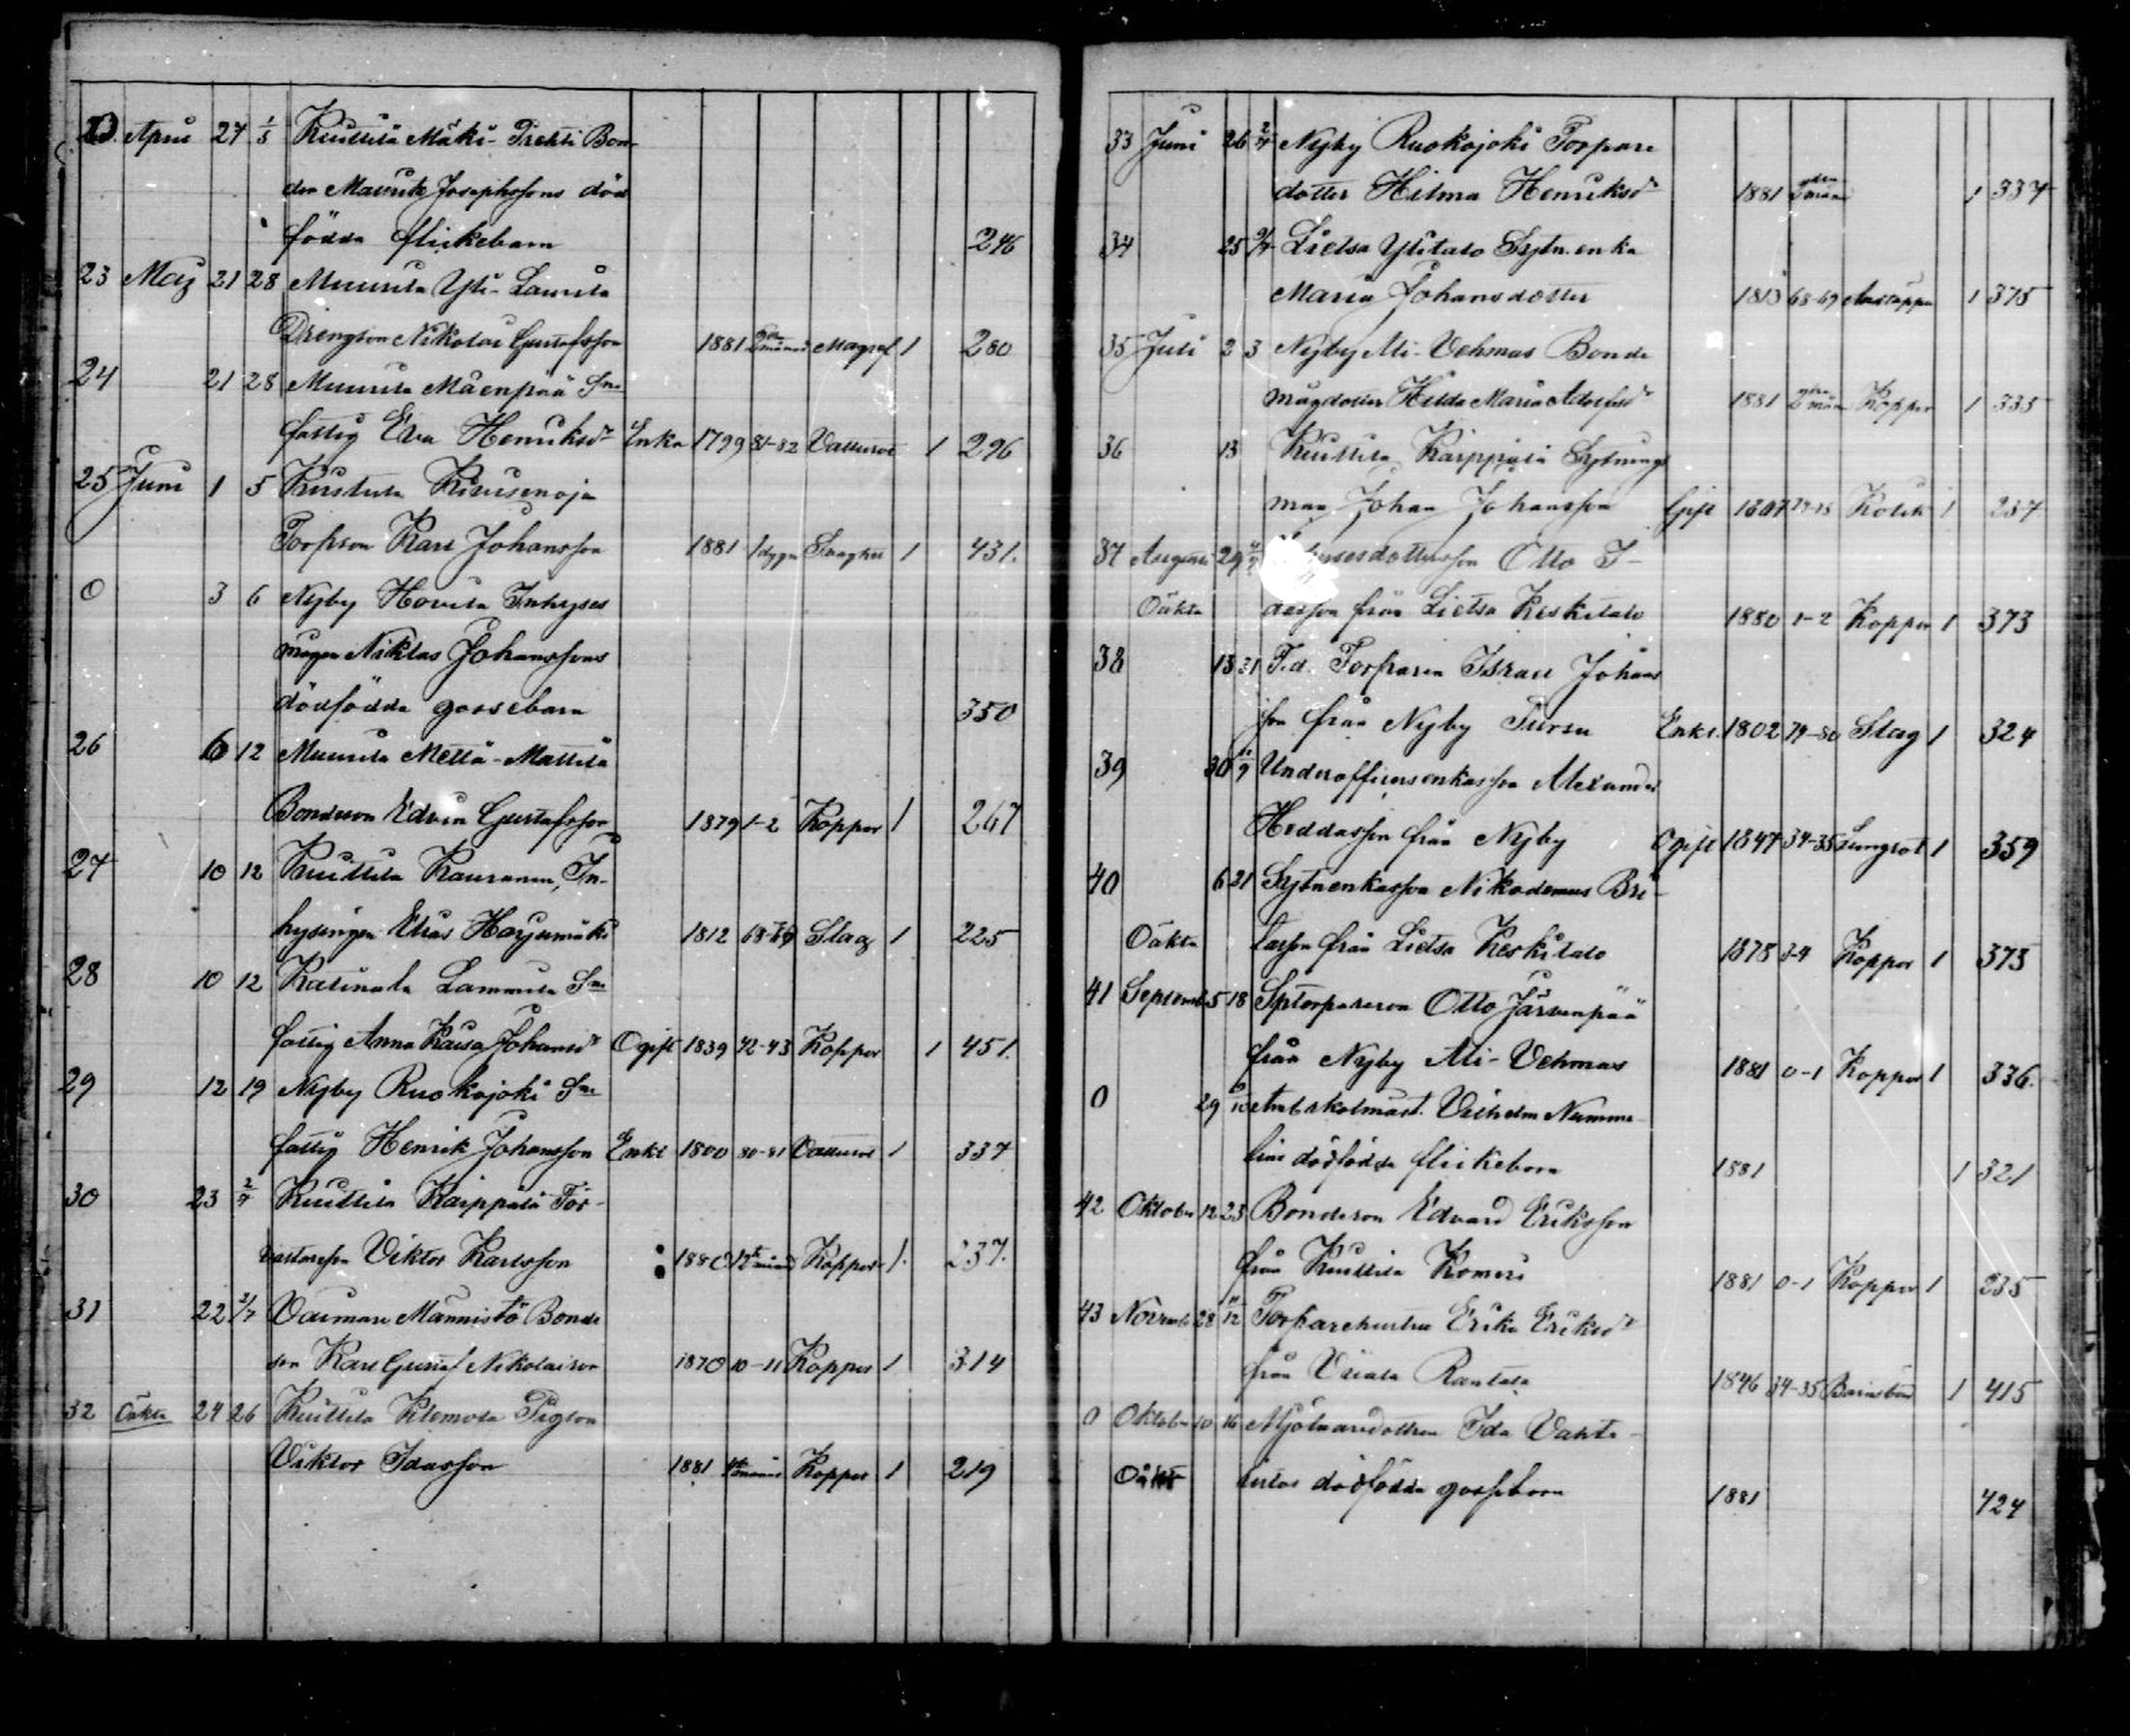 April 27 1/5 Kuittila Mäki-Prekti Bon-
den Maurits Josephssons död
födda flickebarn 246
23 Maj 21 28 Muurila Yli-Laurila
Drengson Nikolai Gustafsson 1881 2 månad Magref 1 280
24 21 28 Muurila Mäenpää Sn
fattig Eva Henriksdr Enka 1799 81-82 Vattusot 1 296
25 Juni 1 5
Torpson Karl Johansson 1881 1 dygn Slaghet 1 431.
0 3 6 Nyby Hovila Inhyses
mågen Niklas Johanssons
dödfödda gossebarn 350
26 6 12 Muurila Mettä-Mattila
Bondeson Edvin Gustafsson 1879 1-2 Koppor 1 267
27 10 12 Kuittila Kauranen, In-
hysingen Elias Harjunmäki 1812 68-69 Slag 1 225
28 10 12 Katinala Lammila Sn
fattig Anna Kaisa Johansdr Ogift 1839 42-43 Koppor 1 451.
29 12 19 Nyby Ruokojoki Sn
fattig Henrik Johansson Enkl 1800 80-81 Vattusot 1 337
30 23 2/7 Kuittila Kaippala För-
Viktor Karlsson 1880 månad Koppor 1. 237.
31 22 2/7 Männistö Bonde
son Karl Gustaf Nikolaison 1870 10-11 Koppor 1 314
32 Oäkta 24 26 Kuittila Klemola Pigson
Viktor Idasson 1881 månad Koppor 1 219
33 Juni 26 2/7 Nyby Ruokojoki Torpare
dotter Hilma Henriksdr 1881 1 337
34 25 2/7 Lietsa Ylitalo Sytn.enka
Maria Johansdotter 1813 68-69 1 375
35 Juli 2 3 Nyby Ali-Vehmas Bonde
mågdotter Hilda Maria Adolfsdr 1881 2 mån Koppor 1 335
36 13 Kuittila Kaippala Sytnings
man Johan Johansson Gift 1807 Kolik 1 237
37 Augusti 29 Otto I-
Oäkta dasson från Lietsa Keskitalo 1880 1-2 Koppor 1 373
38 13 21 F.d. Torparen Israel Johans
son från Nyby Tursu Enkl. 1802 79-80 Slag 1 324
39 30 Underofficersenkasson Alexander
Heddasson från Nyby Ogift 1847 34-35 Lungsot 1 359
40 6 21 Sytnenkasson Nikodemus Bri-
Oäkta tasson från Lietsa Keskitalo 1878 3-4 Koppor 1 373
41 September 5 18 Sptorpareson Otto Järvenpää
från Nyby Ali-Vehmas 1881 0-1 Koppor 1 336.
0 29 Vilhelm Numme-
lins dödfödda flickebarn 1881 1 321
42 Oktober 12 23 Bondeson Edvard Eriksson
från Kuittila Komeri 1881 0-1 Koppor 1 235
43 November 28 11/12 Torparehustru Erika Eriksdr
från Viiala Rantala 1846 34-35 Barnsbörd 1 415
0 Oktober 10 16 Mjölnaredottren Ida Vahte-
Oäkt ristos dödfödda gossebarn 1881 424